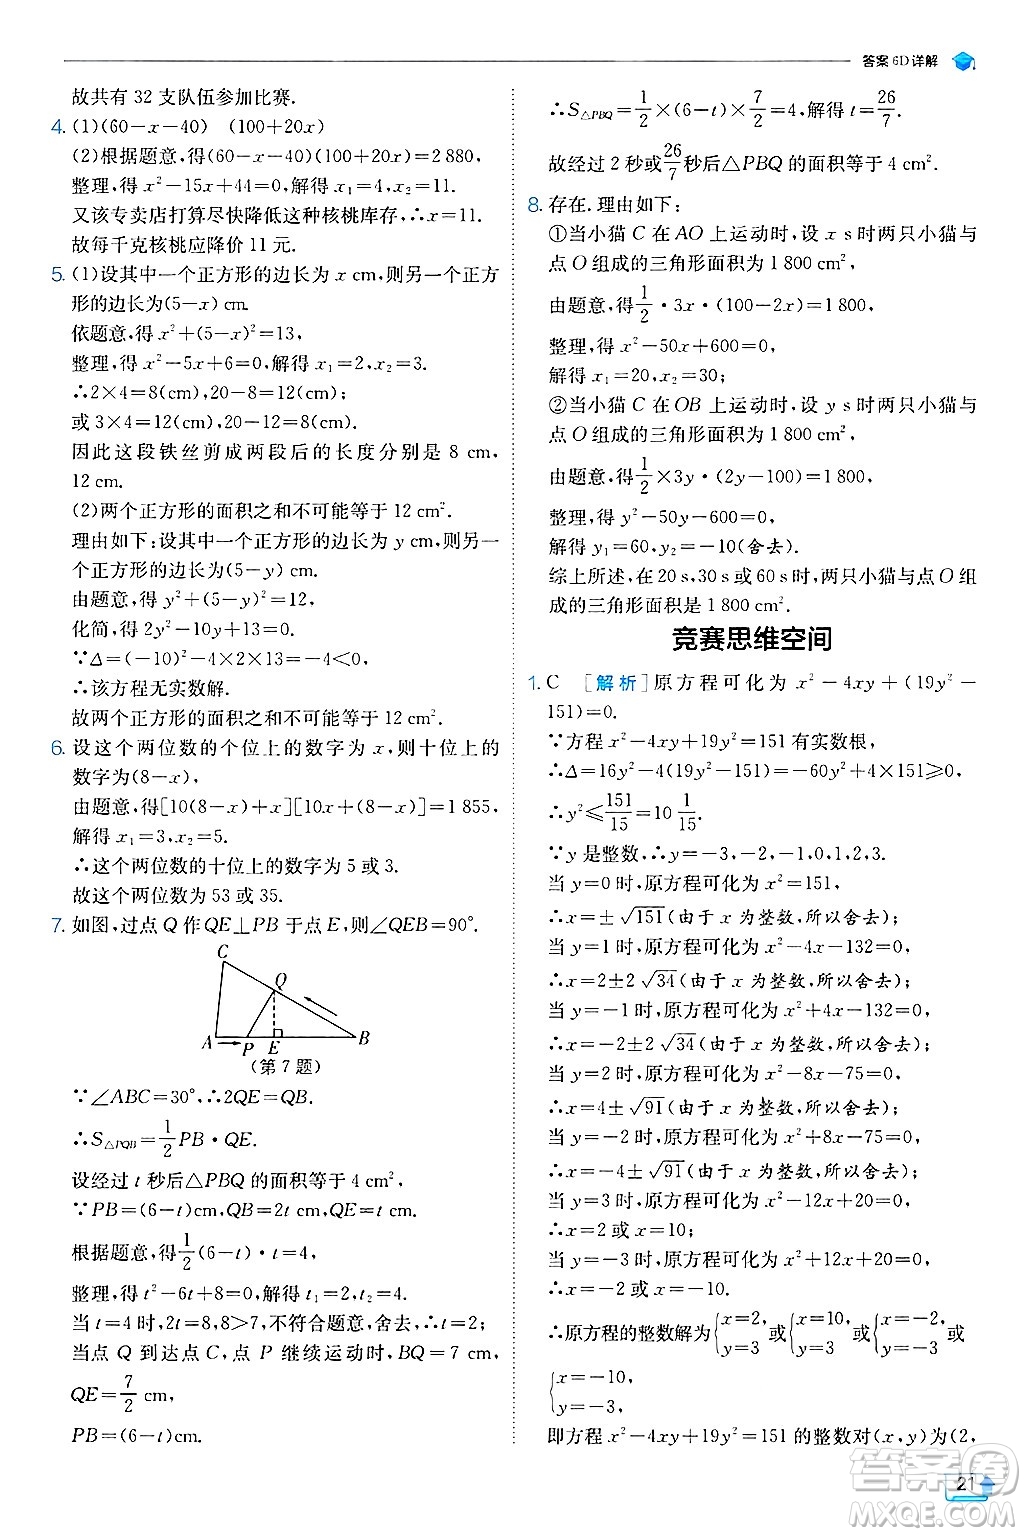 答案 6D 详解
故共有 32 支队伍参加比赛.
4. (1)(60－x－40) (100＋20x)
(2)根据题意,得(60－x－40)(100＋20x)＝2 880,
整理,得 x²－15x＋44＝0,解得 x₁＝4,x₂＝11.
又该专卖店打算尽快降低这种核桃库存,∴x＝11.
故每千克核桃应降价 11 元.
5. (1)设其中一个正方形的边长为 x cm,则另一个正方
形的边长为(5－x) cm.
依题意,得 x²＋(5－x)²＝13,
整理,得 x²－5x＋6＝0,解得 x₁＝2,x₂＝3.
∴2×4＝8(cm),20－8＝12(cm)
或 3×4＝12(cm),20－12＝8(cm).
因此这段铁丝剪成两段后的长度分别是 8 cm,
12 cm.
(2)两个正方形的面积之和不可能等于 12 cm².
理由如下:设其中一个正方形的边长为 y cm,则另一
个正方形的边长为(5－y) cm.
由题意,得 y²＋(5－y)²＝12,
化简,得 2y²－10y＋13＝0.
∵Δ＝(－10)²－4×2×13＝－4＜0,
∴该方程无实数解.
故两个正方形的面积之和不可能等于 12 cm².
6. 设这个两位数的个位上的数字为 x,则十位上的
数字为(8－x),
由题意,得[10(8－x)＋x][10x＋(8－x)]＝1 855,
解得 x₁＝3,x₂＝5.
∴这个两位数的十位上的数字为 5 或 3.
故这个两位数为 53 或 35.
7. 如图,过点 Q 作 QE⊥PB 于点 E,则∠QEB＝90°.
C
Q
A P E B
(第 7 题)
∵∠ABC＝30°,∴2QE＝QB.
∴S△PQB＝1/2 PB·QE.
设经过 t 秒后△PBQ 的面积等于 4 cm²,
∵PB＝(6－t)cm,QB＝2t cm,QE＝t cm.
根据题意,得 1/2(6－t)·t＝4,
整理,得 t²－6t＋8＝0,解得 t₁＝2,t₂＝4.
当 t＝4 时,2t＝8,8＞7,不符合题意,舍去,∴t＝2;
当点 Q 到达点 C,点 P 继续运动时,BQ＝7 cm,
QE＝7/2 cm,
PB＝(6－t)cm.
∴S△PBQ＝1/2×(6－t)×7/2＝4,解得 t＝26/7.
故经过 2 秒或 26/7 秒后△PBQ 的面积为 4 cm².
8. 存在.理由如下:
①当小猫 C 在 AO 上运动时,设 x s时两只小猫与
点 O 组成的三角形面积为 1 800 cm²,
由题意,得 1/2·3x·(100－2x)＝1 800,
整理,得 x²－50x＋600＝0,
解得 x₁＝20,x₂＝30;
②当小猫 C 在 OB 上运动时,设 y s时两只小猫与
点 O 组成的三角形面积为 1 800 cm²,
由题意,得 1/2×3y·(2y－100)＝1 800,
整理,得 y²－50y－600＝0,
解得 y₁＝60,y₂＝－10(舍去).
综上所述,在 20 s,30 s 或 60 s时,两只小猫与点 O 组
成的三角形面积是 1 800 cm².
竞赛思维空间
1. C [解析]原方程可化为 x²－4xy＋(19y²－
151)＝0.
∵方程 x²－4xy＋19y²＝151 有实数根,
∴Δ＝16y²－4(19y²－151)＝－60y²＋4×151≥0,
∴y²≤151/15＝10 1/15.
∵y 是整数,∴y＝－3,－2,－1,0,1,2,3.
当 y＝0 时,原方程可化为 x²＝151,
∴x＝±√151(由于 x 为整数,所以舍去);
当 y＝1 时,原方程可化为 x²－4x－132＝0,
∴x＝2±2√34(由于 x 为整数,所以舍去);
当 y＝－1 时,原方程可化为 x²＋4x－132＝0,
∴x＝－2±2√34(由于 x 为整数,所以舍去);
当 y＝2 时,原方程可化为 x²－8x－75＝0,
∴x＝4±√91(由于 x 为整数,所以舍去);
当 y＝－2 时,原方程可化为 x²＋8x－75＝0,
∴x＝－4±√91(由于 x 为整数,所以舍去);
当 y＝3 时,原方程可化为 x²－12x＋20＝0,
∴x＝2 或 x＝10;
当 y＝－3 时,原方程可化为 x²＋12x＋20＝0,
∴x＝－2 或 x＝－10.
∴原方程的整数解为{x＝2,y＝3 或{x＝10,y＝3 或{x＝－2,y＝－3 或
{x＝－10,y＝－3.
即方程 x²－4xy＋19y²＝151 的整数对(x,y)为(2,
21
答案圈
MXQE.COM